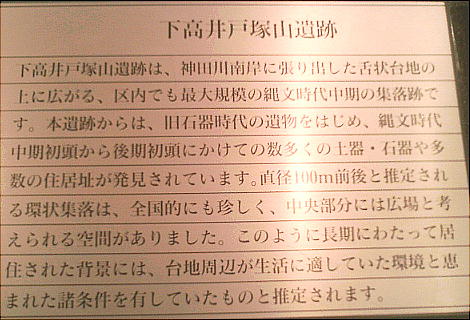 下高井戸塚山遺跡
下高井戸塚山遺跡は、神田川南岸に張り出した舌状台地の
上に広がる、区内でも最大規模の縄文時代中期の集落跡で
す。本遺跡からは、旧石器時代の遺物をはじめ、縄文時代
中期初頭から後期初頭にかけての数多くの土器・石器や多
数の住居址が発見されています。直径100m前後と推定され
る環状集落は、全国的にも珍しく、中央部分には広場と考
えられる空間がありました。このように長期にわたって居
住された背景には、台地周辺が生活に適していた環境と恵
まれた諸条件を有していたものと推定されます。